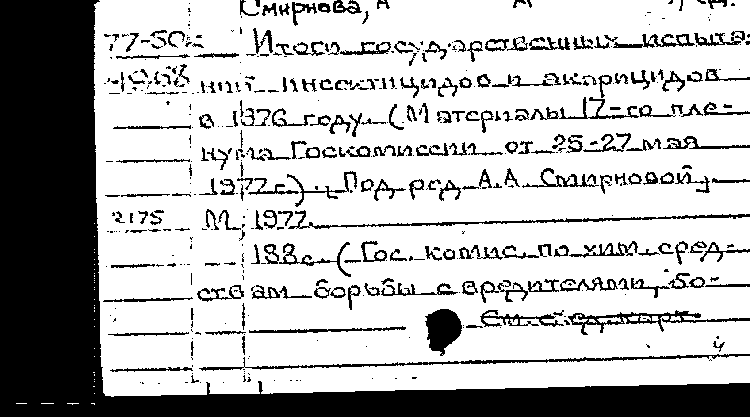 Смирнова, А
77-50 Итоги государственных испыта-
ний инсектицидов и акарицидов
в 1976 году. (Материалы 17-го пле-
нума Госкомиссии от 25-27 мая
1977 г.). [Под ред. А.А. Смирновой].
2175 М., 1977.
188 с. (Гос. комис. по хим. сред-
ствам борьбы с вредителями, бо-
См. след. карт.
4